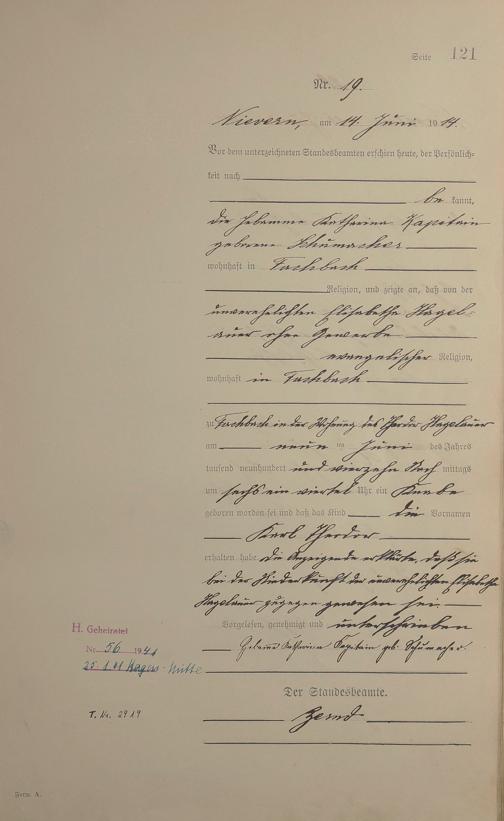 Seite 121
Nr. 19.
Nievern, am 14. Juni 1914.
Vor dem unterzeichneten Standesbeamten erschien heute, der Persönlich-
keit nach
be kannt,
die Hebamme Katharina Kapitain
geborene Schumacher
wohnhaft in Fachbach
Religion, und zeigte an, daß von der
unverehelichten Elisabetha Hagel-
auer ohne Gewerbe
evangelischer Religion,
wohnhaft in Fachbach
zu Fachbach in der Wohnung des Theodor Hagelauer
am neun ten Juni des Jahres
tausend neunhundert und vierzehn Nach mittags
um sechs ein viertel Uhr ein Knabe
geboren worden sei und daß das Kind die Vornamen
Karl Theodor
erhalten habe. Die Anzeigende erklärte, daß sie
bei der Niederkunft der unverehelichten Elisabetha
Hagelauer zugegen gewesen sei.
Vorgelesen, genehmigt und unterschrieben
Katharina Kapitain geb. Schumacher.
H. Geheiratet
Nr. 56 1941
Der Standesbeamte.
T. Nr. 2919
Form. A.